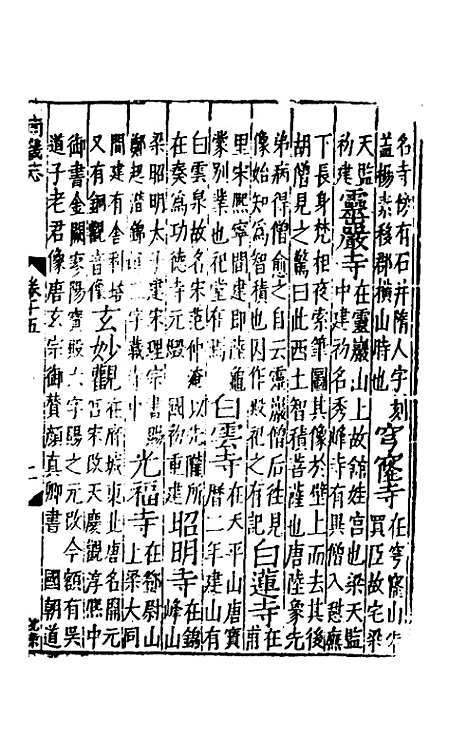 名寺傍有石井隋人字刻穹窿寺在穹窿山朱買臣故宅梁
蓋楊素移郡橫山時也
天監
初建靈巖寺在靈巖山上故舘娃宮也梁天監
中建初名秀峰寺有異僧入慰廡
下長身梵相夜索筆圖其像於壁上而去其後
胡僧見之驚曰此西土智積菩薩也唐陸象先
弟病得僧愈之自云靈巖僧后往見
像始知為智積也因作殿祀之有記白蓮寺在甫
里宋熙寧間建即陸龜
蒙別業也祀堂有焉白雲寺在天平山唐寶
曆二年建山有
白雲泉故名宋范仲淹功先隴所
在奏為功德寺元燬國初重建昭明寺在錦峰山
梁昭明大子建宋理宗書賜
光福寺在鄧尉山
上梁大同
間建有舍利塔
又有銅觀音像玄妙觀在府城東北唐名開元
宮宋改天慶觀淳熙中
御書金闕寥陽寶殿六字賜之元改今額有吳
道子老君像唐玄宗御贊顏真卿書國朝道
卷十五